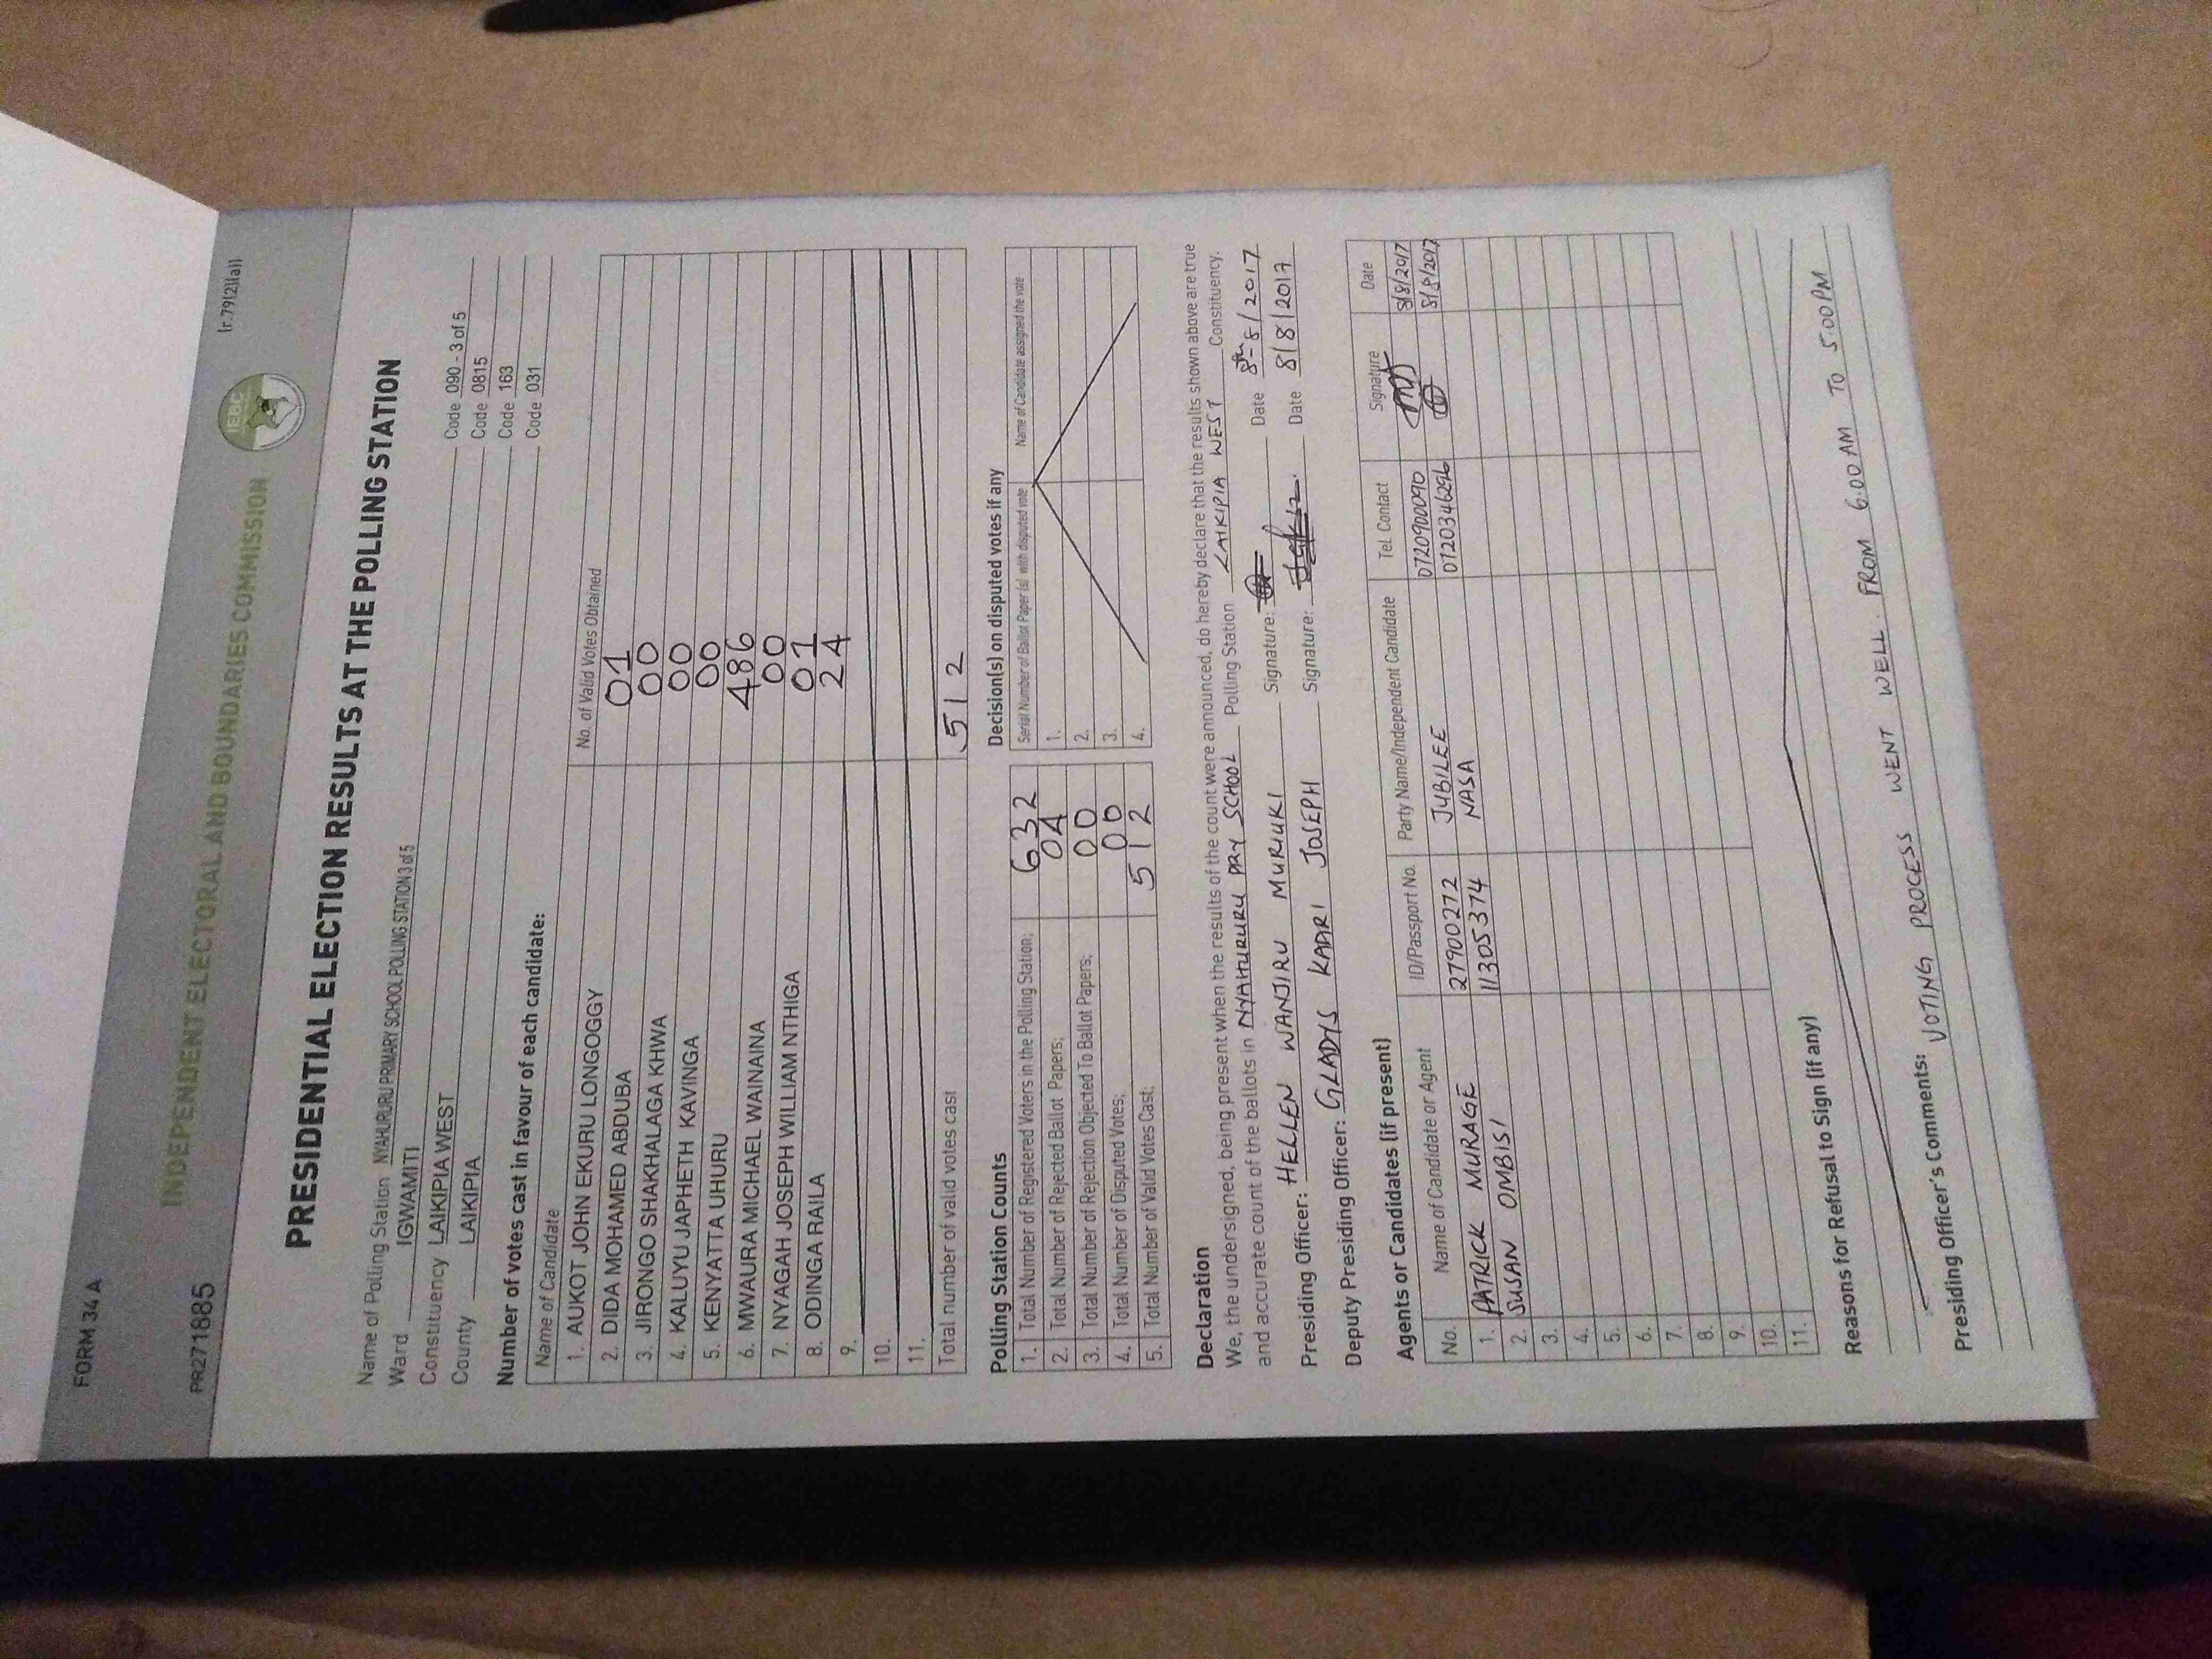 FORM 34 A
PR271885
(r.79(2)(a))
INDEPENDENT ELECTORAL AND BOUNDARIES COMMISSION
IEBC
PRESIDENTIAL ELECTION RESULTS AT THE POLLING STATION
Name of Polling Station NYAHURURU PRIMARY SCHOOL POLLING STATION 3 of 5 Code 090 - 3 of 5
Ward IGWAMITI Code 0815
Constituency LAIKIPIA WEST Code 163
County LAIKIPIA Code 031
Number of votes cast in favour of each candidate:
Name of Candidate No. of Valid Votes Obtained
1. AUKOT JOHN EKURU LONGOGGY 01
2. DIDA MOHAMED ABDUBA 00
3. JIRONGO SHAKHALAGA KHWA 00
4. KALUYU JAPHETH KAVINGA 00
5. KENYATTA UHURU 486
6. MWAURA MICHAEL WAINAINA 00
7. NYAGAH JOSEPH WILLIAM NTHIGA 01
8. ODINGA RAILA 24
9.
10.
11.
Total number of valid votes cast 512
Polling Station Counts
1. Total Number of Registered Voters in the Polling Station; 632
2. Total Number of Rejected Ballot Papers; 04
3. Total Number of Rejection Objected To Ballot Papers; 00
4. Total Number of Disputed Votes; 00
5. Total Number of Valid Votes Cast; 512
Decision(s) on disputed votes if any
Serial Number of Ballot Paper (s) with disputed vote Name of Candidate assigned the vote
1.
2.
3.
4.
Declaration
We, the undersigned, being present when the results of the count were announced, do hereby declare that the results shown above are true
and accurate count of the ballots in NYAHURURU PRY SCHOOL Polling Station LAIKIPIA WEST Constituency.
Presiding Officer: HELLEN WANJIRU MURIUKI Signature: Date 8th-8/2017
Deputy Presiding Officer: GLADYS KAARI JOSEPH Signature: Date 8/8/2017
Agents or Candidates (if present)
No. Name of Candidate or Agent ID/Passport No. Party Name/Independent Candidate Tel. Contact Signature Date
1. PATRICK MURAGE 27900272 JUBILEE 0720900090 8/8/2017
2. SUSAN OMBISI 11305374 NASA 0720346296 8/8/2017
3.
4.
5.
6.
7.
8.
9.
10.
11.
Reasons for Refusal to Sign (if any)
Presiding Officer's Comments: VOTING PROCESS WENT WELL. FROM 6.00 AM TO 5.00 PM